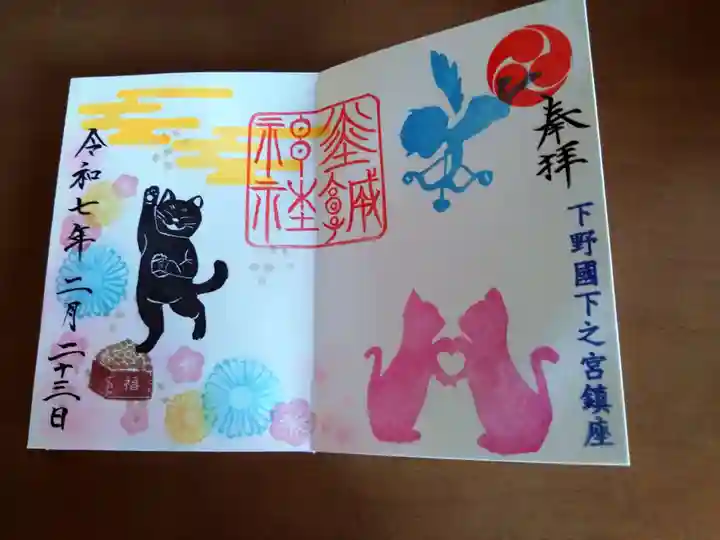 奉拝
下野國下之宮鎮座
神社
令和七年二月二十三日
福